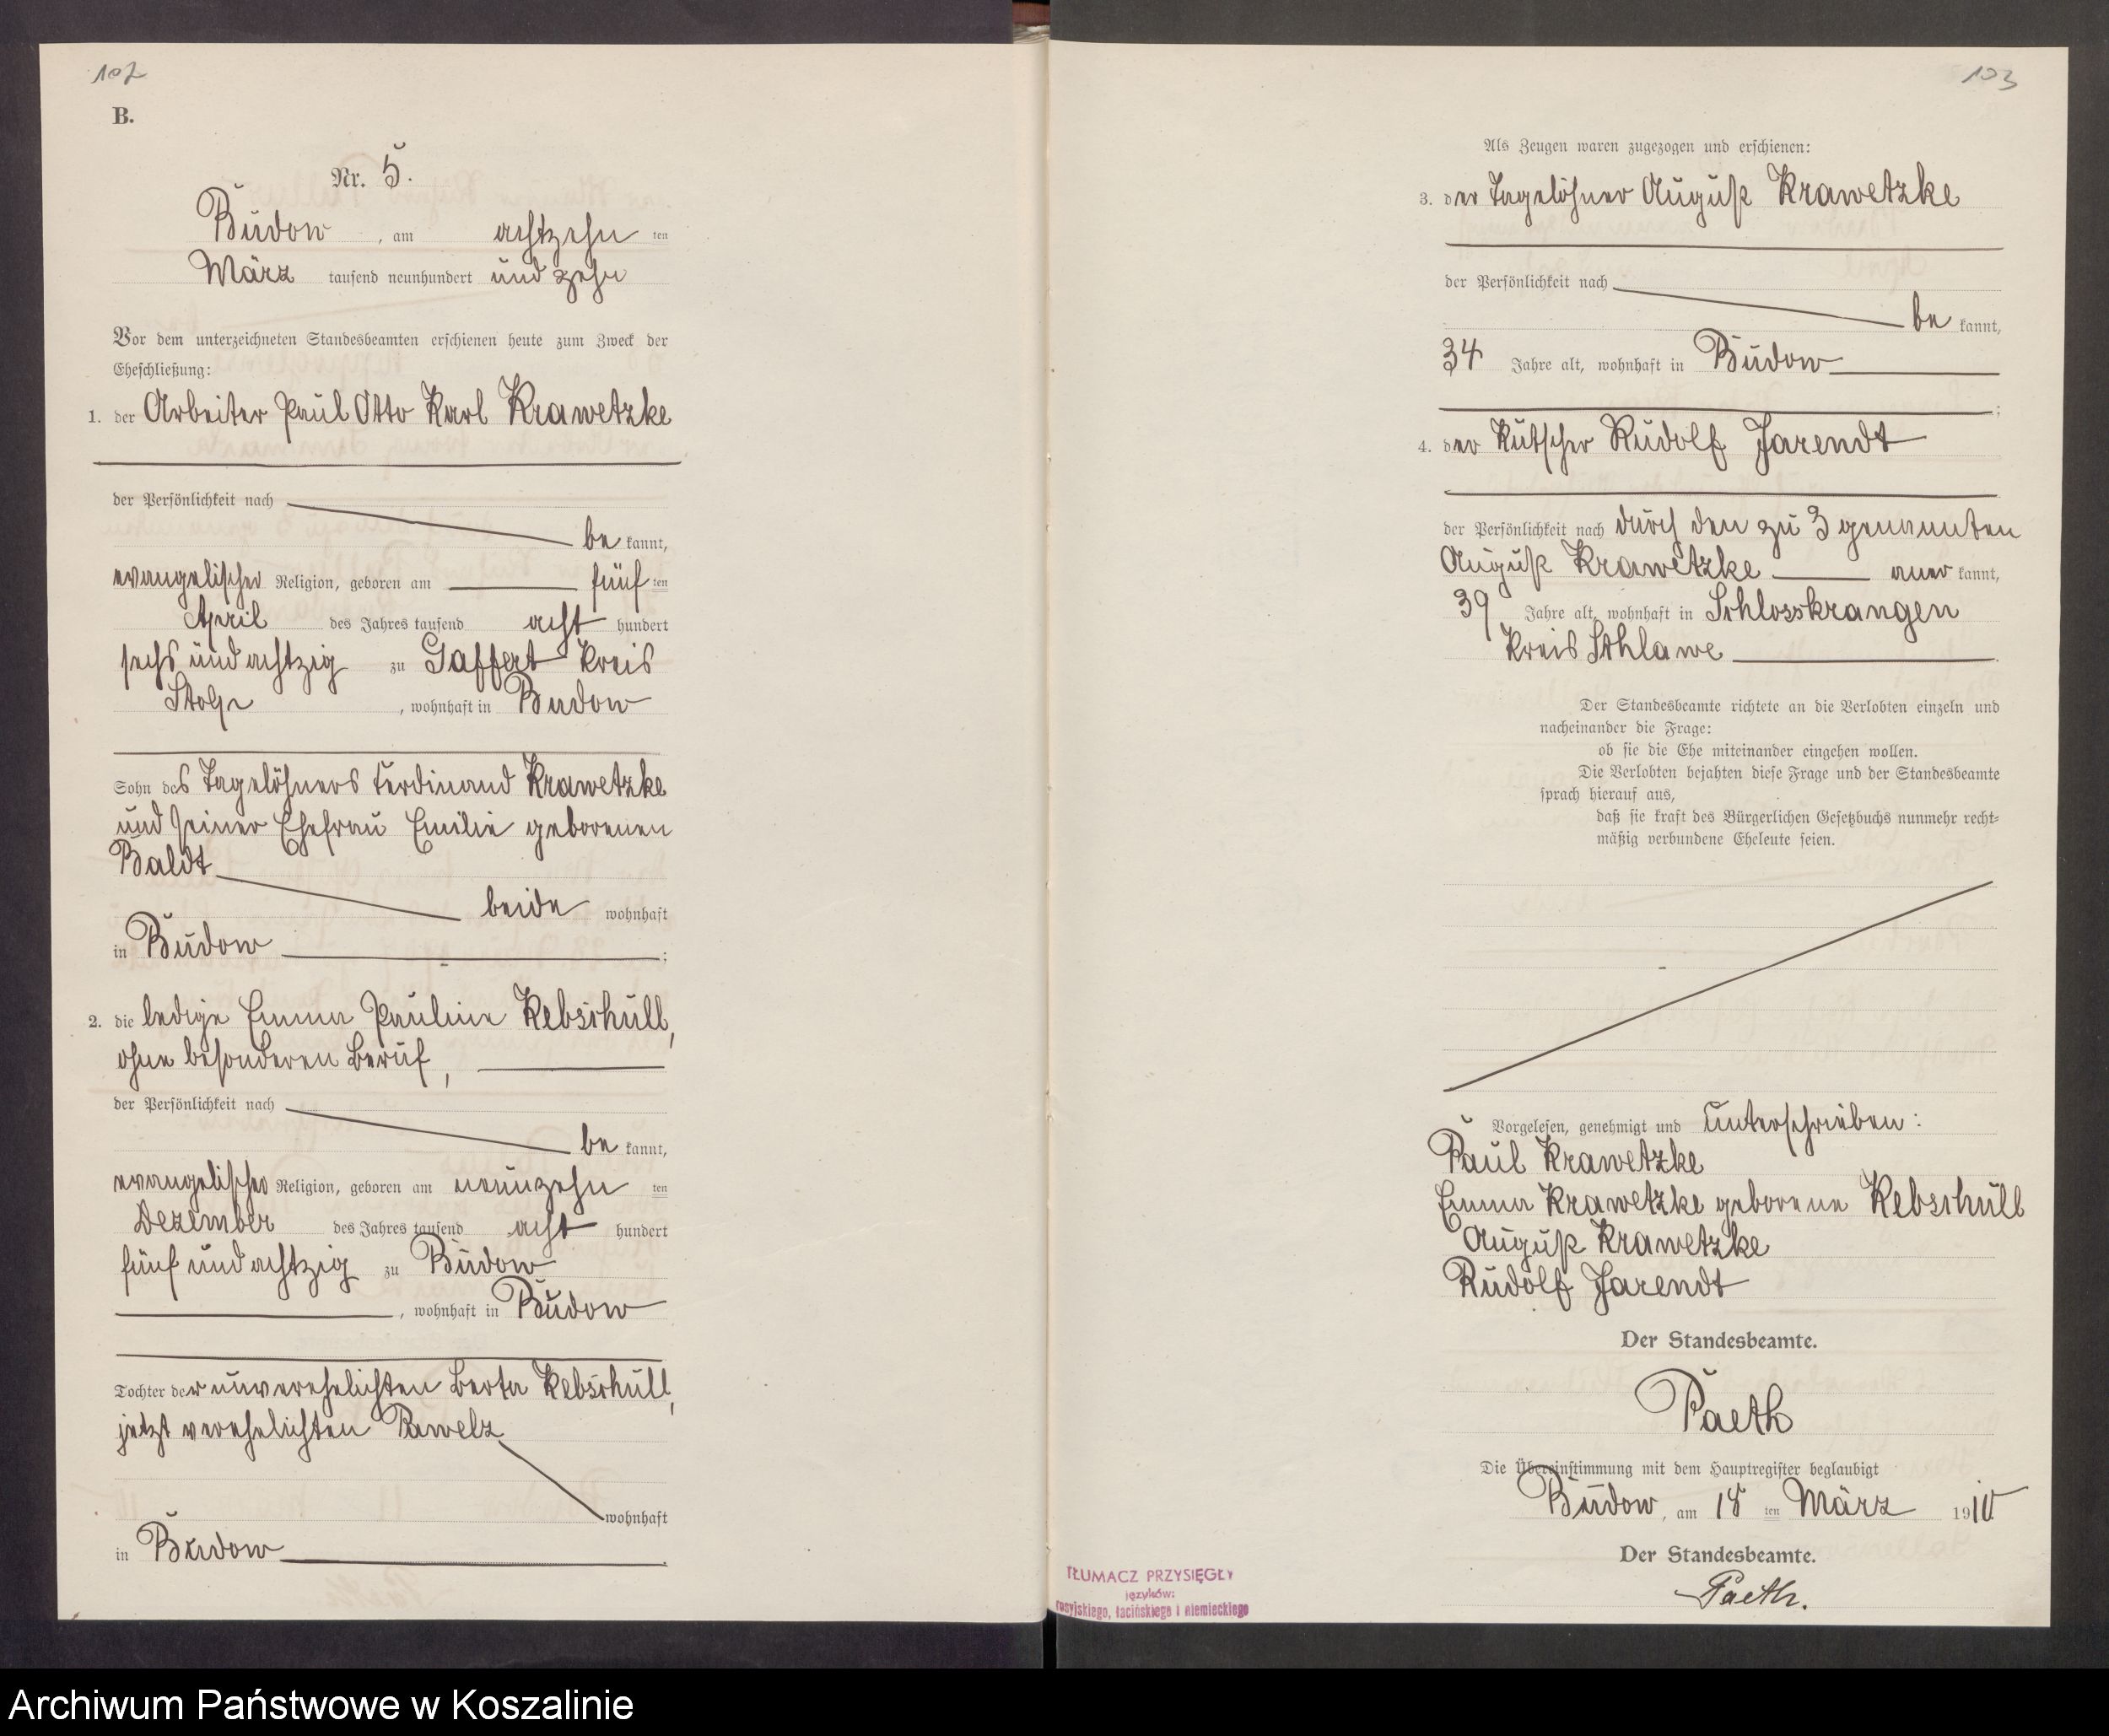 107
B.
Nr. 5.
Budow, am achtzehn ten
März tausend neunhundert und zehn
Vor dem unterzeichneten Standesbeamten erschienen heute zum Zweck der
Eheschließung:
1. der Arbeiter Paul Otto Karl Krawetzke
der Persönlichkeit nach
be kannt,
evangelischer Religion, geboren am fünf ten
April des Jahres tausend acht hundert
sechs und achtzig zu Gaffert Kreis
Stolp, wohnhaft in Budow
Sohn des Tagelöhners Ferdinand Krawetzke
und seiner Ehefrau Emilie geborenen
Baldt
beide wohnhaft
in Budow;
2. die ledige Emma Pauline Rebschull,
ohne besonderen Beruf,
der Persönlichkeit nach
be kannt,
evangelischer Religion, geboren am neunzehn ten
Dezember des Jahres tausend acht hundert
fünf und achtzig zu Budow
, wohnhaft in Budow
Tochter der unverehelichten Berta Rebschull,
jetzt verehelichten Pawelz
wohnhaft
in Budow.
103
Als Zeugen waren zugezogen und erschienen:
3. der Tagelöhner August Krawetzke
der Persönlichkeit nach
be kannt,
34 Jahre alt, wohnhaft in Budow
;
4. der Kutscher Rudolf Jarendt
der Persönlichkeit nach durch den zu 3 genannten
August Krawetzke aner kannt,
39 Jahre alt, wohnhaft in Schlosskrangen
Kreis Schlawe.
Der Standesbeamte richtete an die Verlobten einzeln und
nacheinander die Frage:
ob sie die Ehe miteinander eingehen wollen.
Die Verlobten bejahten diese Frage und der Standesbeamte
sprach hierauf aus,
daß sie kraft des Bürgerlichen Gesetzbuchs nunmehr recht-
mäßig verbundene Eheleute seien.
Vorgelesen, genehmigt und unterschrieben:
Paul Krawetzke
Emma Krawetzke geborene Rebschull
August Krawetzke
Rudolf Jarendt
Der Standesbeamte.
Paeth
Die Übereinstimmung mit dem Hauptregister beglaubigt
Budow, am 18 ten März 1910
Der Standesbeamte.
Paeth.
TŁUMACZ PRZYSIĘGŁY
języków:
rosyjskiego, łacińskiego i niemieckiego
Archiwum Państwowe w Koszalinie